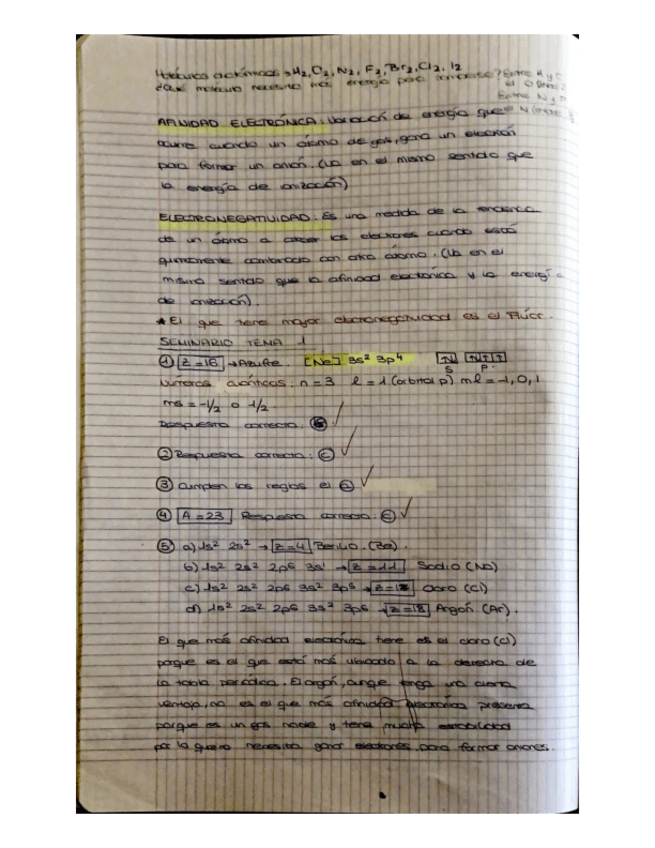 Moléculas diatómicas → H2, O2, N2, F2, Br2, Cl2, I2
¿Qué molécula necesita más energía para romperse? Entre H y O
el O
Entre N y
el N
AFINIDAD ELECTRÓNICA: Variación de energía que
ocurre cuando un átomo de gas, gana un electrón
para formar un anión. (Va en el mismo sentido que
la energía de ionización)
ELECTRONEGATIVIDAD: Es una medida de la tendencia
de un átomo a atraer los electrones cuando está
químicamente combinado con otro átomo. (Va en el
mismo sentido que la afinidad electrónica y la energía
de ionización).
* El que tiene mayor electronegatividad es el Flúor.
SEMINARIO TEMA 1
① Z=16 → Azufre. [Ne] 3s² 3p⁴
S P.
Números cuánticos: n=3 l=1 (orbital p) ml=-1,0,1
ms = -1/2 o 1/2.
Respuesta correcta:
② Respuesta correcta: ⓒ
③ Cumplen las reglas el
④ A=23 Respuesta correcta:
⑤ a) 1s² 2s² → Z=4 Berilio. (Be).
b) 1s² 2s² 2p6 3s¹ → Z=11 Sodio (Na)
c) 1s² 2s² 2p6 3s² 3p5 → Cloro (Cl)
d) 1s² 2s² 2p6 3s² 3p6 → Z=18 Argón (Ar).
El que más afinidad electrónica tiene es el cloro (Cl)
porque es el que está más ubicado a la derecha de
la tabla periódica. El argón, aunque tenga una cierta
ventaja, no es el que más afinidad electrónica presenta
porque es un gas noble y tiene mucha estabilidad
por lo que no necesita ganar electrones para formar aniones.